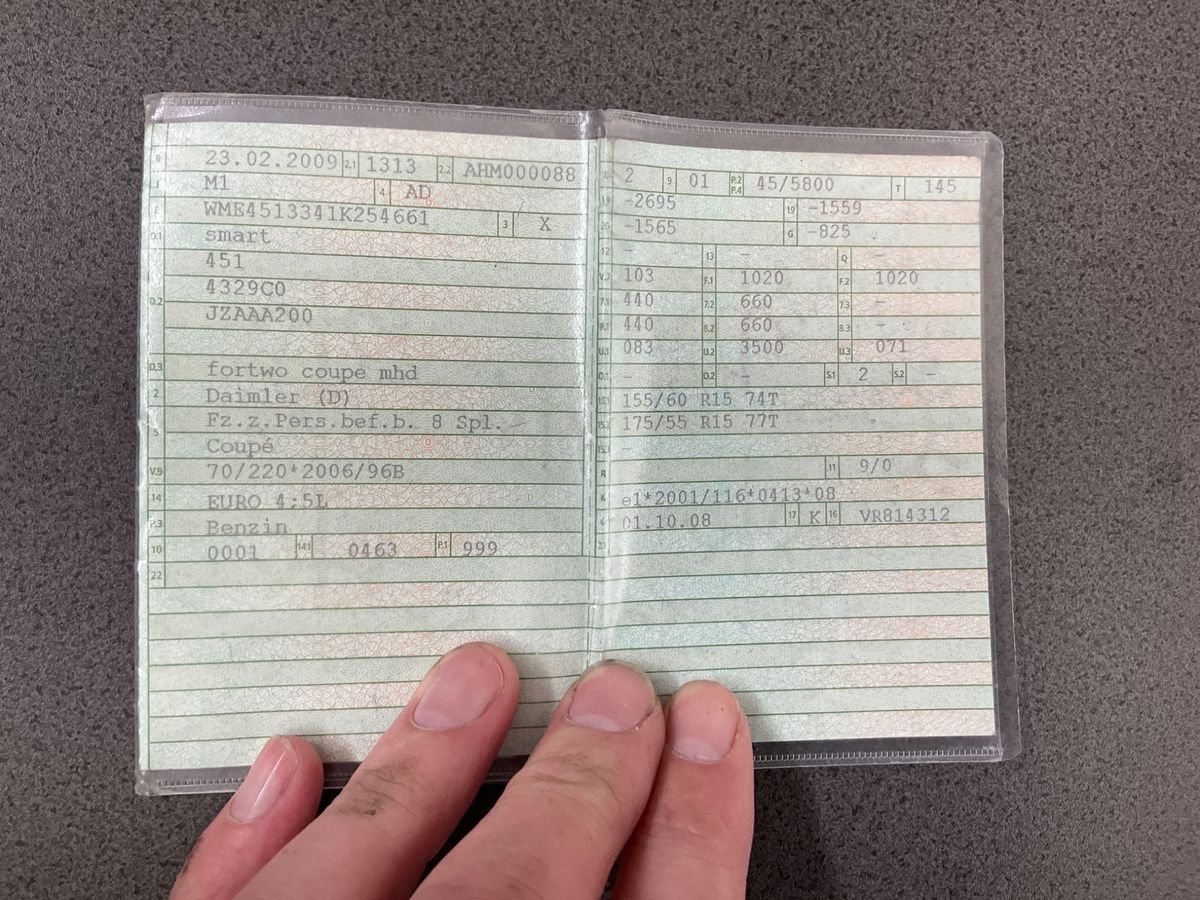 B 23.02.2009 2.1 1313 2.2 AHM000088
J M1 4 AD
E WME4513341K254661 3 X
D.1 smart
451
D.2 4329C0
JZAAA200
D.3 fortwo coupe mhd
2 Daimler (D)
5 Fz.z.Pers.bef.b. 8 Spl.
Coupé
V.9 70/220*2006/96B
14 EURO 4;5L
P.3 Benzin
10 0001 14.1 0463 P.1 999
22
2 9 01 P.2 P.4 45/5800 T 145
18 -2695 19 -1559
20 -1565 G -825
12 - 13 - Q -
V.7 103 F.1 1020 F.2 1020
7.1 440 7.2 660 7.3 -
8.1 440 8.2 660 8.3 -
U.1 083 U.2 3500 U.3 071
O.1 - O.2 - S.1 2 S.2 -
15.1 155/60 R15 74T
15.2 175/55 R15 77T
15.3
R 11 9/0
K e1*2001/116*0413*08
6 01.10.08 17 K 16 VR814312
21